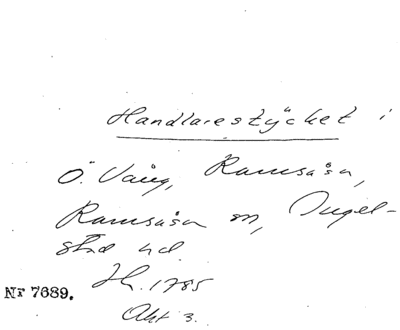 Handlarestycket i
Ö. Vång, Ramsåsa,
Ramsåsa sn, Ingel-
stad hd.
Sk. 1785
Nr 7689.
Akt 3.